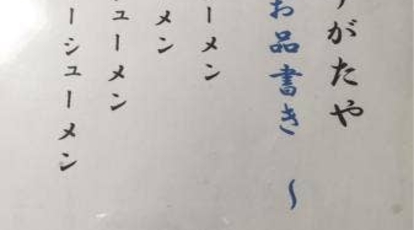 がたや
お品書き 〜
ーメン
メン
ューメン
ーシューメン